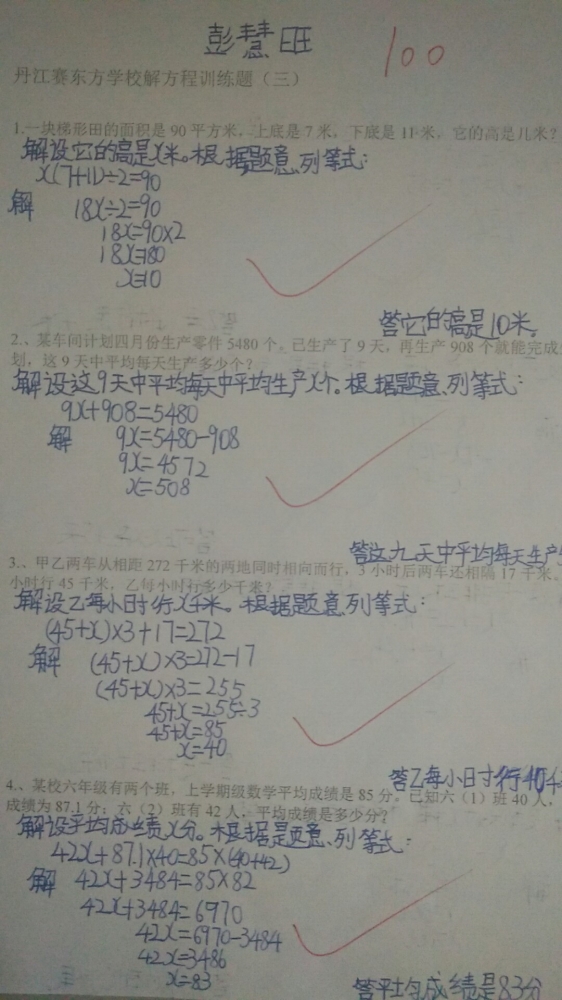 彭慧旺
100
丹江赛东方学校解方程训练题（三）
1.一块梯形田的面积是 90 平方米，上底是 7 米，下底是 11 米，它的高是几米？
解设它的高是x米。根据题意,列等式：
x(7+11)÷2=90
解 18x÷2=90
18x=90×2
18x=180
x=10
答它的高是10米。
2.、某车间计划四月份生产零件 5480 个。已生产了 9 天，再生产 908 个就能完成
划，这 9 天中平均每天生产多少个？
解设这9天中平均每天中平均生产x个。根据题意,列等式：
9x+908=5480
解 9x=5480-908
9x=4572
x=508
答这九天中平均每天生产
3.、甲乙两车从相距 272 千米的两地同时相向而行，3 小时后两车还相隔 17 千米。
小时行 45 千米，乙每小时行多少千米？
解设乙每小时行x千米。根据题意,列等式：
(45+x)×3+17=272
解 (45+x)×3=272-17
(45+x)×3=255
45+x=255÷3
45+x=85
x=40
答乙每小时行40
4.、某校六年级有两个班，上学期级数学平均成绩是 85 分。已知六（1）班 40 人，
成绩为 87.1 分；六（2）班有 42 人，平均成绩是多少分？
解设平均成绩x分。根据题意,列等式：
42x+87.1×40=85×(40+42)
解 42x+3484=85×82
42x+3484=6970
42x=6970-3484
42x=3486
x=83
答平均成绩是83分